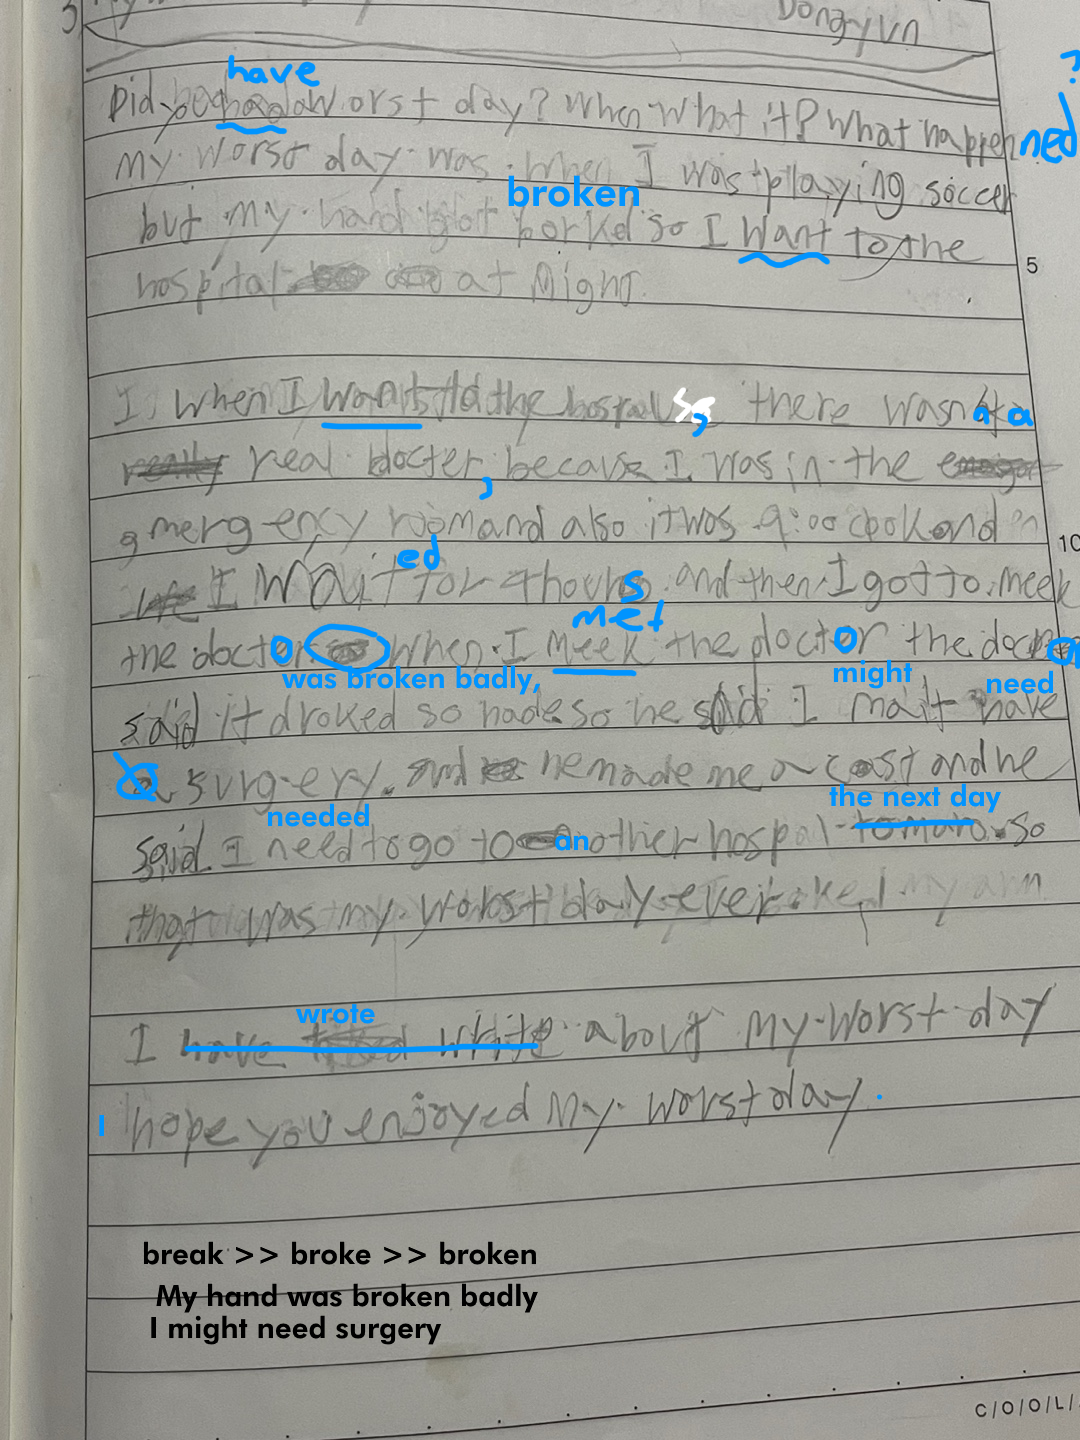 Dongyun
have
Did you had a worst day? When What it? What happen ned ?
My worst day was when I was playing soccer
broken
but my hand got borked so I want to the
5
hospital at Night.
I when I want to the there wasn't a
real docter, because I was in the
emergency room and also it was 9:00 and
10
ed s
I wait for 4 hours and then I got to meek
met
the doctor When I meek the doctor the
was broken badly, might need
said it droked so hade so he said I mait have
a surgery. and he made me a cast and he
needed an the next day
said I need to go to another hospal tomaro. so
that was my worst day ever
wrote
I have write about My worst day
I hope you enjoyed My worst day.
break >> broke >> broken
My hand was broken badly
I might need surgery
C/O/O/L/